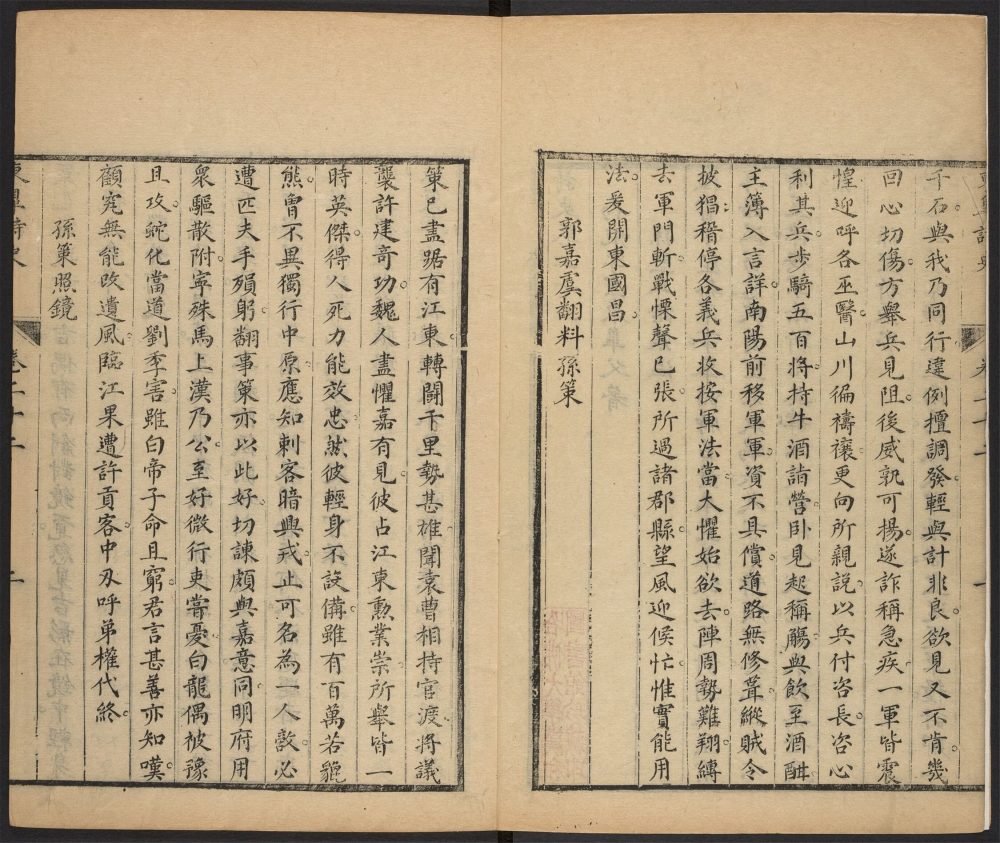 千石與我乃同行違例擅調發輕與計非良欲見又不肯幾
回心切傷方舉兵見阻後威孰可揚遂詐稱急疾一軍皆震
惶迎呼各巫醫山川徧禱禳更向所親説以兵付咨長咨心
利其兵步騎五百將持牛酒詣營卧見起稱觴與飲至酒酣
主簿入言詳南陽前移軍軍資不具償道路無修葺縱賊令
披猖稽停各義兵收按軍法當大懼始欲去陣周勢難翔縛
去軍門斬戰慄聲已張所過諸郡縣望風迎候忙惟實能用
法爰開東國昌
郭嘉虞翻料孫策
策已盡踞有江東轉鬭千里勢甚雄聞袁曹相持官渡將議
襲許建奇功魏人盡懼嘉有見彼占江東勳業崇所舉皆一
時英傑得人死力能效忠然彼輕身不設備雖有百萬若貔
熊曾不異獨行中原應知刺客暗興戎止可名為一人敵必
遭匹夫手殞躬翻事策亦以此好切諫頗與嘉意同明府用
衆驅散附寧殊馬上漢乃公至好微行吏嘗憂白龍偶被豫
且攻蛇化當道劉季害雖白帝子命且窮君言甚善亦知嘆
顧究無能改遺風臨江果遭許貢客中刃呼弟權代終
孫策照鏡
卷二十二